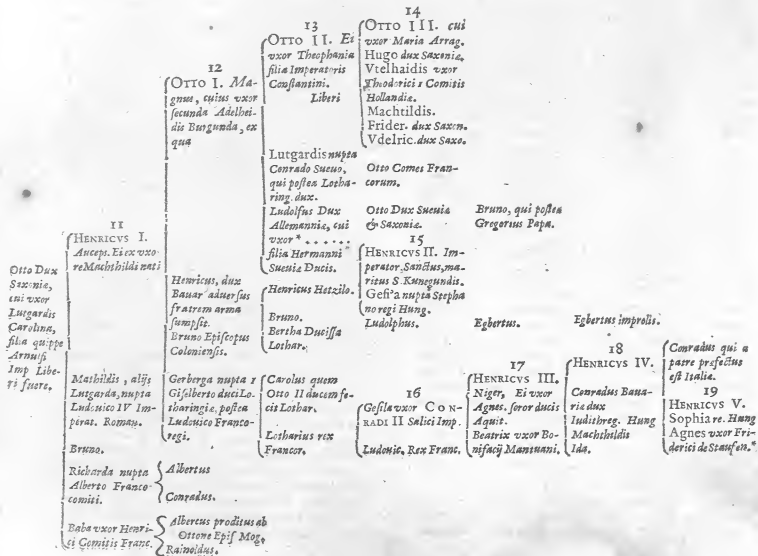 Otto Dux
Saxoniæ,
cui vxor
Lutgardis
Carolina,
filia quippe
Arnulfi
Imp Libe-
ri fuere.
11
HENRICVS I.
Auceps. Ei ex vxo-
re Machthildi nati
Mathildis, alijs
Lutgarda, nupta
Ludouico IV Im-
perat. Roman.
Bruno.
Richarda nupta
Alberto Franco-
comiti.
Baba vxor Henri-
ci Comitis Franc.
12
OTTO I. Ma-
gnus, cuius vxor
secunda Adelhei-
dis Burgunda, ex
qua
Henricus, dux
Bauar aduersus
fratrem arma
sumpsit.
Bruno Episcopus
Coloniensis.
Gerberga nupta 1
Giselberto duci Lo-
tharingiæ, postea
Ludouico Franco-
regi.
Albertus
Conradus.
Albertus proditus ab
Ottone Epis Mog.
Rainoldus.
13
OTTO II. Ei
vxor Theophania
filia Imperatoris
Constantini.
Liberi
Lutgardis nupta
Conrado Sueuo,
qui postea Lotha-
ring. dux.
Ludolfus Dux
Allemanniæ, cui
vxor * . . . . . .
filia Hermanni
Sueuiæ Ducis.
Henricus Hetzilo.
Bruno.
Bertha Ducissa
Lothar.
Carolus quem
Otto II ducem fe-
cit Lothar.
Lotharius rex
Francor.
14
OTTO III. cui
vxor Maria Arrag.
Hugo dux Saxoniæ.
Vtelhaidis vxor
Theodorici 1 Comitis
Hollandiæ.
Machtildis.
Frider. dux Saxon.
Vdelric. dux Saxo.
Otto Comes Fran-
corum.
Otto Dux Sueuiæ
& Saxoniæ.
Bruno, qui postea
Gregorius Papa.
15
HENRICVS II. Im-
perator, Sanctus, ma-
ritus S. Kunegundis.
Gesila nupta Stepha
no regi Hung.
Ludolphus.
Egbertus.
Egbertus improlis.
16
Gesila vxor CON-
RADI II Salici Imp.
Ludouic. Rex Franc.
17
HENRICVS III.
Niger, Ei vxor
Agnes. soror ducis
Aquit.
Beatrix vxor Bo-
nifacij Mantuani.
18
HENRICVS IV.
Conradus Baua-
riæ dux
Iudith reg. Hung
Machthildis
Ida.
Conradus qui a
patre præfectus
est Italiæ.
19
HENRICVS V.
Sophia re. Hung
Agnes vxor Fri-
derici de Staufen.*